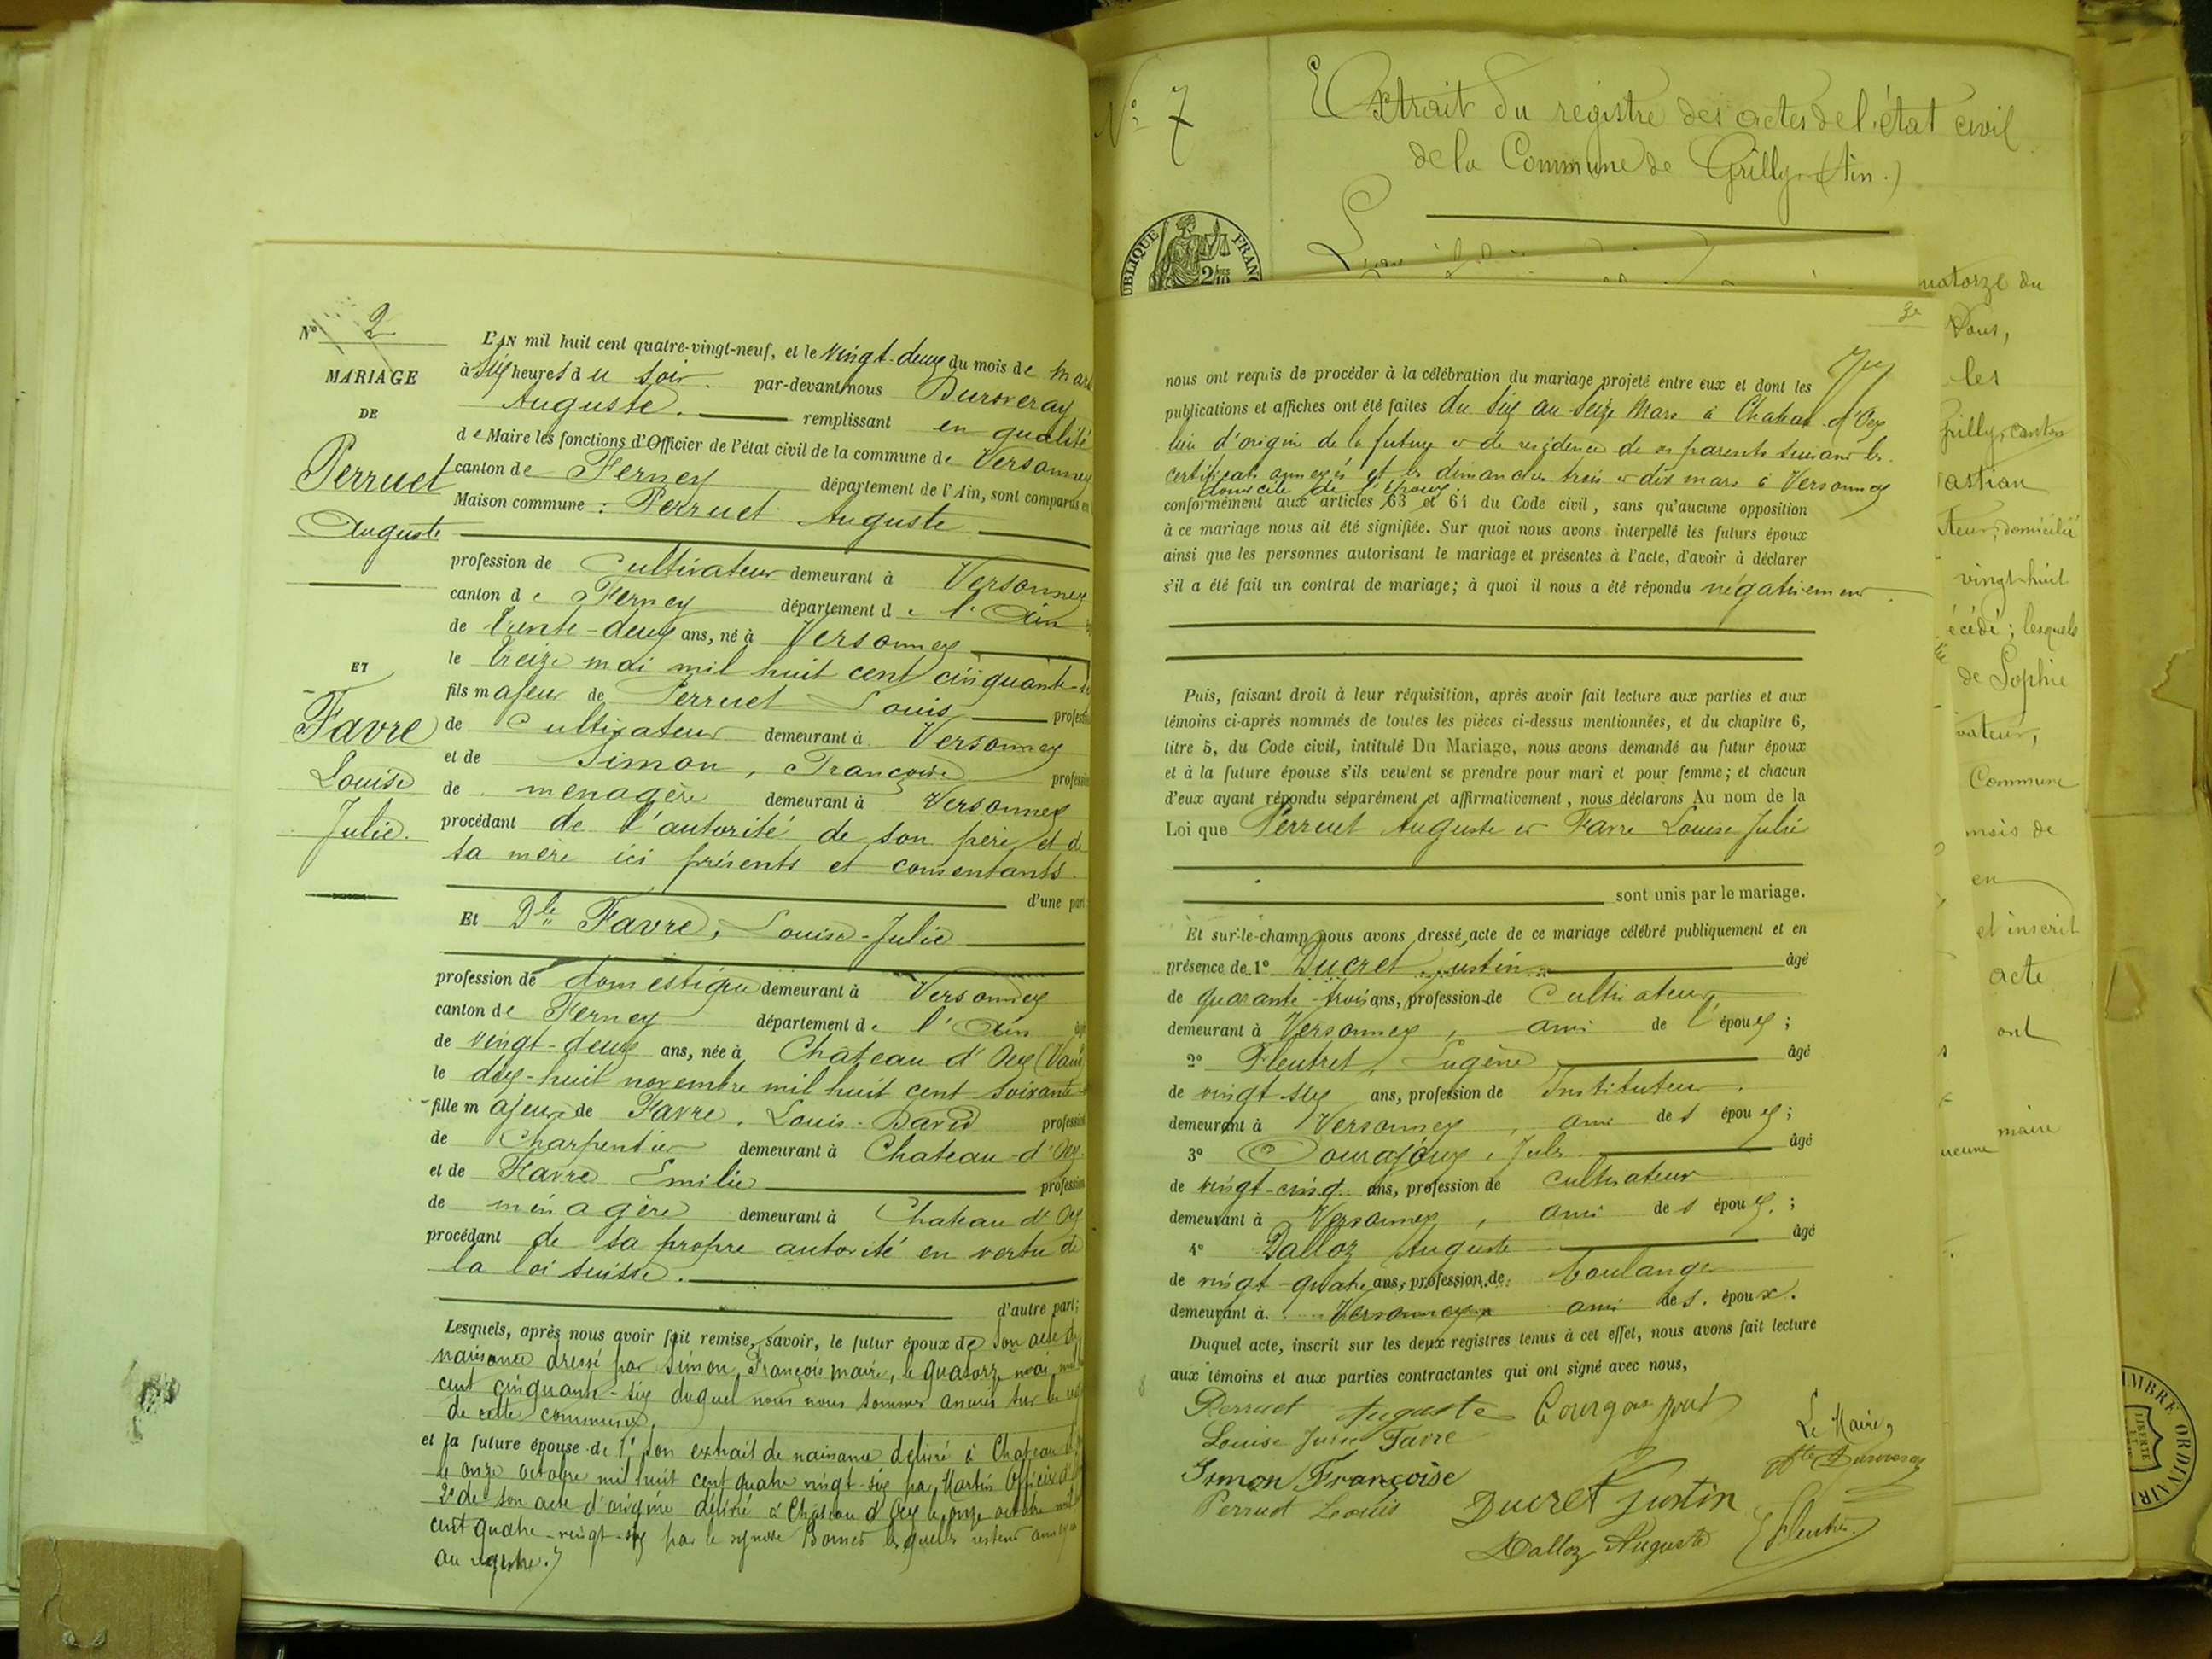 No 2
MARIAGE
DE
Perruet
Auguste
ET
Favre
Louise
Julie.
L'AN mil huit cent quatre-vingt-neuf, et le vingt-deux du mois de Mars
à six heures du soir. par-devant nous Dursveray
Auguste. remplissant en qualité
de Maire les fonctions d'Officier de l'état civil de la commune de Versonnex
canton de Ferney département de l'Ain, sont comparus en
Maison commune : Perruet Auguste
profession de Cultivateur demeurant à Versonnex
canton de Ferney département de l'Ain
de trente-deux ans, né à Versonnex
le treize mai mil huit cent cinquante-
fils majeur de Perruet Louis
de Cultivateur demeurant à Versonnex
et de Simon, Françoise
de menagère demeurant à Versonnex
procédant de l'autorité de son père et de
sa mère ici présents et consentants.
d'une part
Et Dlle Favre, Louise-Julie
profession de domestique demeurant à Versonnex
canton de Ferney département de l'Ain
de vingt-deux ans, née à Château d'Oex (Vaud
le dix-huit novembre mil huit cent soixante
fille majeure de Favre, Louis-David profession
de Charpentier demeurant à Chateau-d'Oex
et de Favre Emilie profession
de ménagère demeurant à Chateau d'Oex
procédant de sa propre autorité en vertu de
la loi suisse.
d'autre part;
Lesquels, après nous avoir fait remise, savoir, le futur époux de son acte de
naissance dressé par Simon, François maire, le quatorze mai mil
cent cinquante-six duquel nous nous sommes assurés sur le
de cette commune,
et la future épouse de 1° son extrait de naissance délivré à Chateau d'
le onze octobre mil huit cent quatre vingt-six par Martin Officier d'
2° de son acte d'origine délivré à Château d'Oex le onze octobre mil
cent quatre-vingt-six par le syndic lesquels restent
au registre.
No 7
Extrait du registre des actes de l'état civil
de la Commune de Grilly (Ain.)
3e
nous ont requis de procéder à la célébration du mariage projeté entre eux et dont les
publications et affiches ont été faites du six au seize Mars à Chateau d'Oex
lieu d'origine de la future et de residence de ses parents suivant les
certificats annexés et les dimanches trois et dix mars à Versonnex
domicile de l'époux
conformément aux articles 63 et 64 du Code civil, sans qu'aucune opposition
à ce mariage nous ait été signifiée. Sur quoi nous avons interpellé les futurs époux
ainsi que les personnes autorisant le mariage et présentes à l'acte, d'avoir à déclarer
s'il a été fait un contrat de mariage; à quoi il nous a été répondu négativement.
Puis, faisant droit à leur réquisition, après avoir fait lecture aux parties et aux
témoins ci-après nommés de toutes les pièces ci-dessus mentionnées, et du chapitre 6,
titre 5, du Code civil, intitulé Du Mariage, nous avons demandé au futur époux
et à la future épouse s'ils veulent se prendre pour mari et pour femme; et chacun
d'eux ayant répondu séparément et affirmativement, nous déclarons Au nom de la
Loi que Perruet Auguste et Favre Louise Julie
sont unis par le mariage.
Et sur-le-champ nous avons dressé acte de ce mariage célébré publiquement et en
présence de 1° Ducret Justin âgé
de quarante-trois ans, profession de Cultivateur
demeurant à Versonnex, ami de l'époux;
2° Fleutret, Eugène âgé
de vingt-six ans, profession de Instituteur.
demeurant à Versonnex, ami des époux;
3° Jules âgé
de vingt-cinq ans, profession de cultivateur
demeurant à Versonnex, ami des époux.;
4° Dalloz Auguste âgé
de vingt-quatre ans, profession de boulanger
demeurant à Versonnex ami des époux.
Duquel acte, inscrit sur les deux registres tenus à cet effet, nous avons fait lecture
aux témoins et aux parties contractantes qui ont signé avec nous,
Perruet Auguste
Louise Julie Favre
Le Maire,
Simon Françoise
Perruet Louis
Ducret Justin
Dalloz Auguste
natorze du
les
Grilly, canton
astian
teur, domicilié
vingt-huit
écédé; lesquels
de Sophie
vateur,
Commune
mois de
en
et inscrit
acte
ont
maire